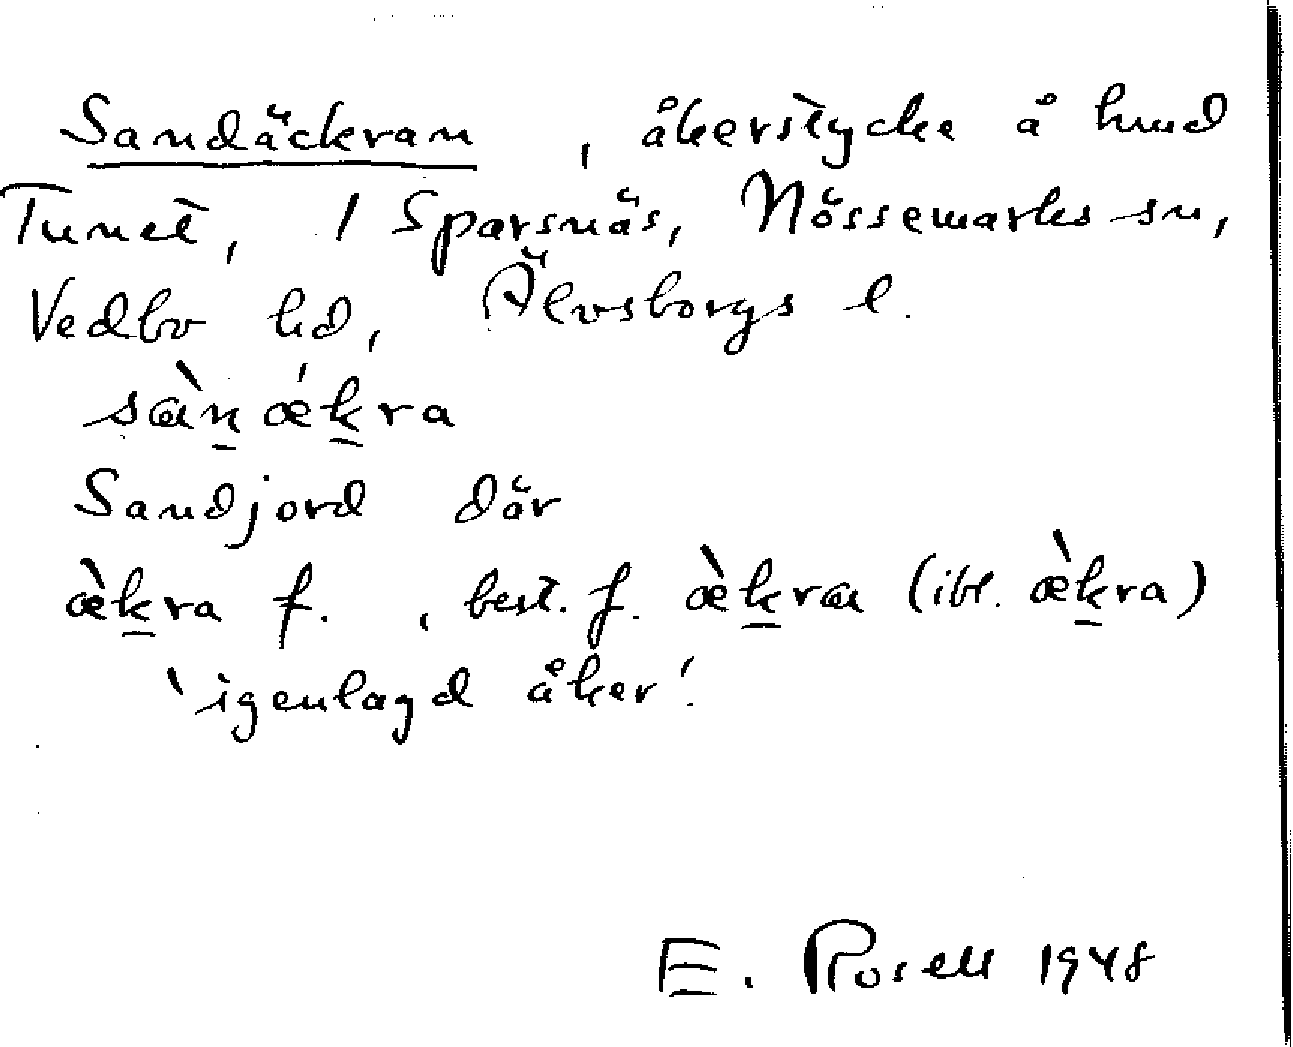 Sandäckran, åkerstycke å hmd
Tunet, 1 Sparsnäs, Nössemarks sn,
Vedbo hd, Älvsborgs l.
sàn̲ǽk̲ra
Sandjord där
æ̀k̲ra f., best. f. æ̀k̲ra (ibl. æ̀k̲ra)
'igenlagd åker'.
E. Rosell 1948